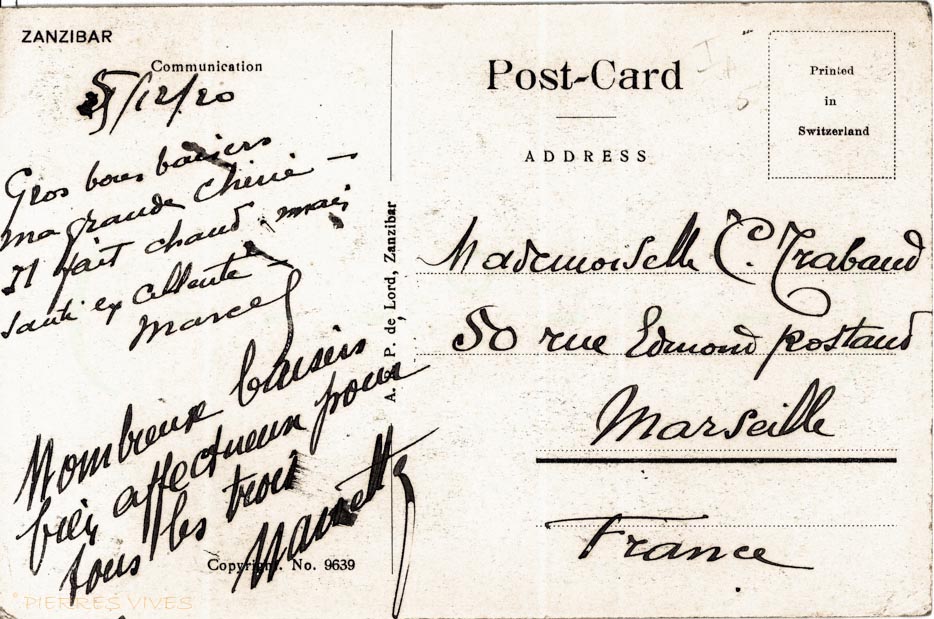 ZANZIBAR
Communication
5/12/20
Gros bons baisers
ma grande Chérie —
Il fait chaud. mais
santé excellente —
Marcel
Nombreux baisers
bien affectueux pour
tous les trois
Copyright. No. 9639
A. P. de Lord, Zanzibar
Post-Card
ADDRESS
Printed
in
Switzerland
Mademoiselle C. Trabaud
50 rue Edmond Rostand
Marseille
France
© PIERRES VIVES